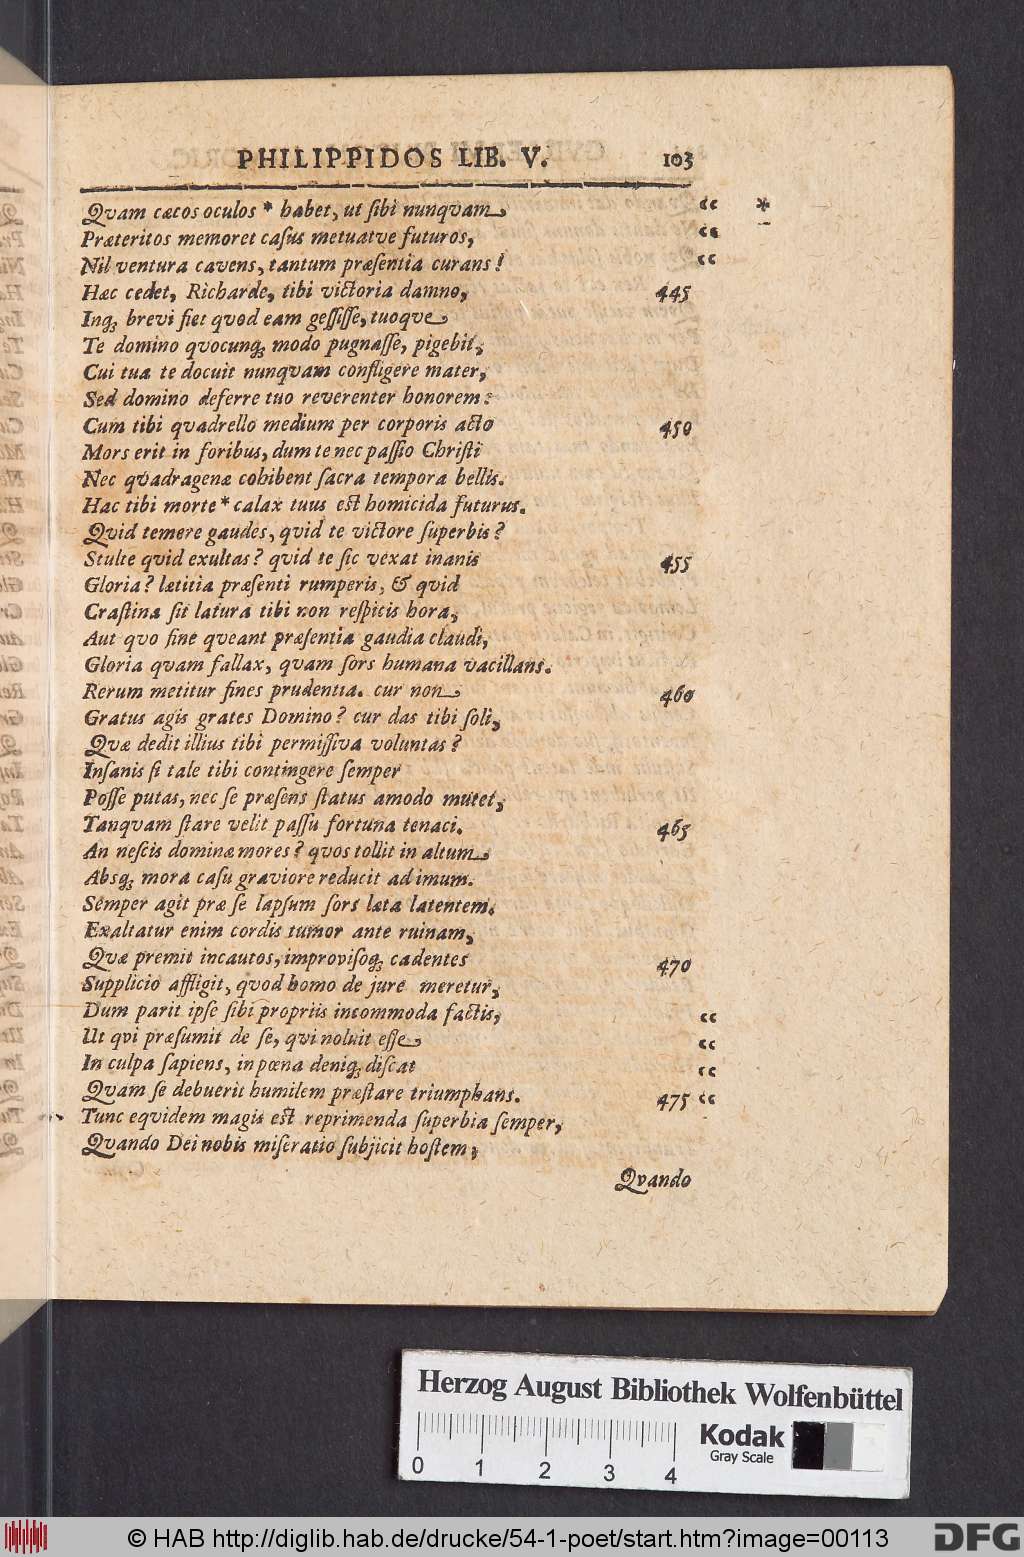 PHILIPPIDOS LIB. V. 103
Qvam cæcos oculos * habet, ut ſibi nunqvam “ *
Præteritos memoret caſus metuatve futuros, “
Nil ventura cavens, tantum præſentia curans! “
Hæc cedet, Richarde, tibi victoria damno, 445
Inq; brevi fiet qvod eam geſſiſſe, tuoqve
Te domino qvocunq; modo pugnaſſe, pigebit,
Cui tua te docuit nunqvam confligere mater,
Sed domino deferre tuo reverenter honorem:
Cum tibi qvadrello medium per corporis acto 450
Mors erit in foribus, dum te nec paſſio Chriſti
Nec qvadragenæ cohibent ſacra tempora bellis.
Hac tibi morte * calax tuus est homicida futurus.
Qvid temere gaudes, qvid te victore ſuperbis?
Stulte qvid exultas? qvid te ſic vexat inanis 455
Gloria? lætitia præſenti rumperis, & qvid
Craſtina ſit latura tibi non reſpicis hora,
Aut qvo fine qveant præſentia gaudia claudi,
Gloria qvam fallax, qvam ſors humana vacillans.
Rerum metitur fines prudentia. cur non 460
Gratus agis grates Domino? cur das tibi ſoli,
Qvæ dedit illius tibi permiſſiva voluntas?
Inſanis ſi tale tibi contingere ſemper
Poſſe putas, nec ſe præſens ſtatus amodo mutet,
Tanqvam ſtare velit paſſu fortuna tenaci. 465
An neſcis dominæ mores? qvos tollit in altum
Absq; mora caſu graviore reducit ad imum.
Semper agit præ ſe lapſum ſors læta latentem.
Exaltatur enim cordis tumor ante ruinam,
Qvæ premit incautos, improviſoq; cadentes 470
Supplicio affligit, qvod homo de jure meretur,
Dum parit ipſe ſibi propriis incommoda factis, “
Ut qvi præſumit de ſe, qvi noluit eſſe “
In culpa ſapiens, in pœna deniq; diſcat “
Qvam ſe debuerit humilem præſtare triumphans. 475 “
Tunc eqvidem magis est reprimenda ſuperbia ſemper,
Qvando Dei nobis miſeratio ſubjicit hoſtem,
Qvando
Herzog August Bibliothek Wolfenbüttel
0 1 2 3 4
Kodak
Gray Scale
© HAB http://diglib.hab.de/drucke/54-1-poet/start.htm?image=00113
DFG